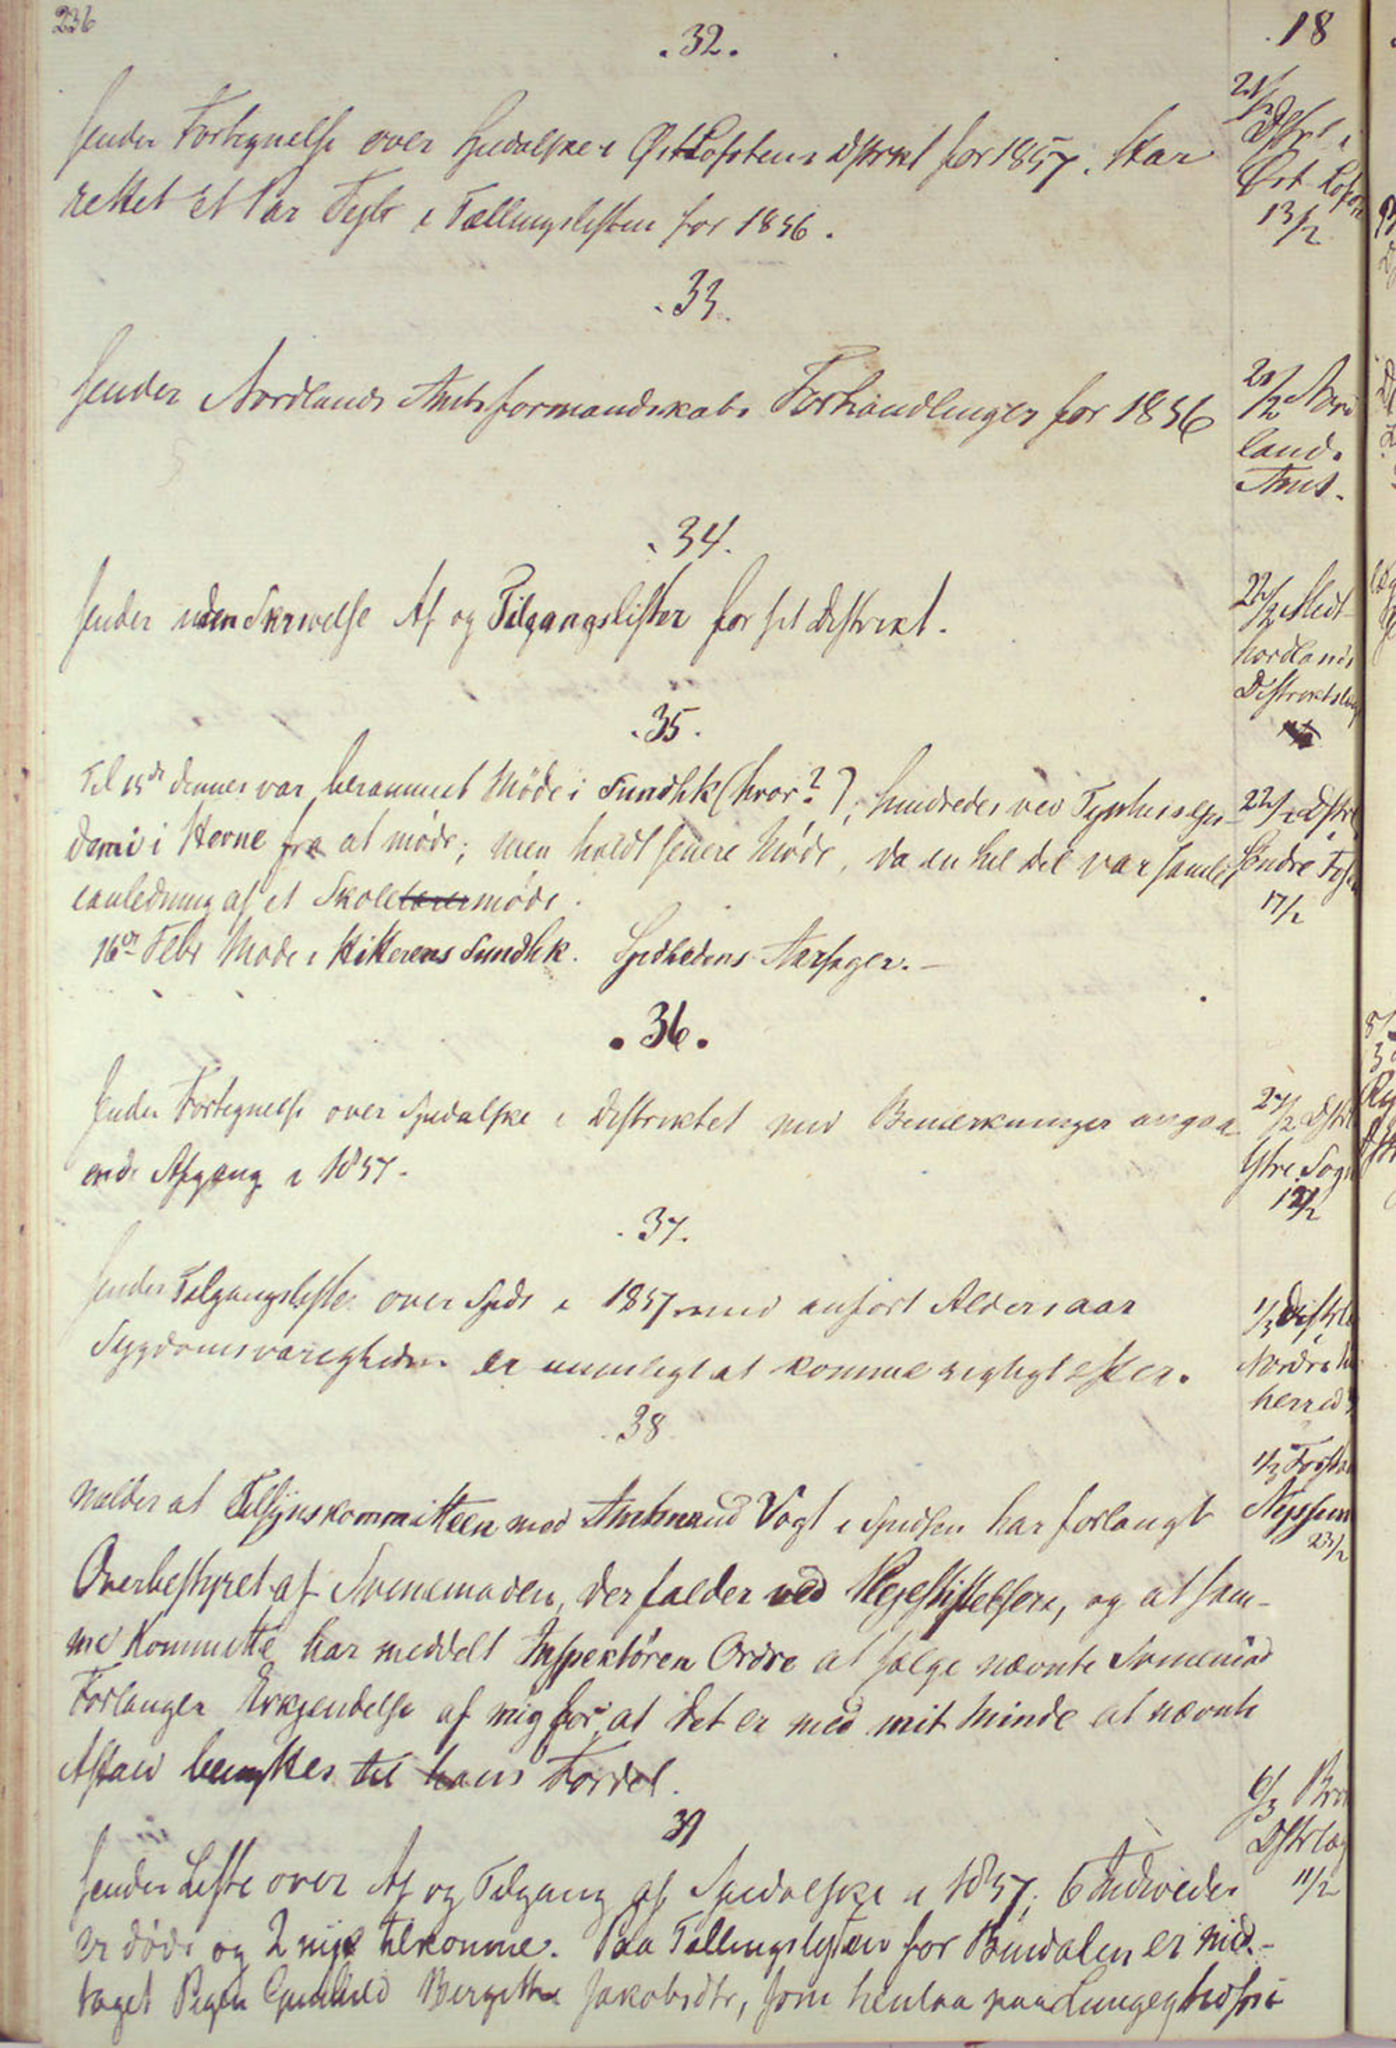 236
.32.
18
Sender Fortegnelse over Spedalske i Øst Lofotens Distrikt for 1857. Har
rettet et Par Fejl i Tællingslisten for 1856.
21/2 Dstrl i
Øst Lofoten
13/2
.33.
Sender Nordlands Amtsformandskabs Forhandlinger for 1856
21/2 Nord
lands
Amt.
.34.
Sender uden Skrivelse Af og Tilgangslister for sit Distrikt.
22/2 Midt
hordlands
Distriktslæge
.35.
Til 15de dennes var berammet Møde i Sundhk (hvor?), hindredes ved Typhusepi-
demi i Hevne fra at møde; men holdt senere Møde, da en hel Del var samlet
eanledning af et Skolelærermøde.
16de Febr Møde i Hitterens Sundhk. Spedhedens Aarsager.-
22/2 Dstrl
Søndre Fosen
17/2
.36.
Sender Fortegnelse over Spedalske i Distriktet med Bemærkninger angaa-
ende Afgang i 1857.
27/2 Dstrl
Ytre Sogn
12/2
.37.
Sender Tilgangsliste over Speds i 1857 med anført Aldersaar
Sygdomsvarigheden er umuligt at komme rigtigt efter.
1/3 Distrl
Nordre
herred
38
Melder at Tilsynskommitteen med Amtmand Vogt i Spidsen har forlangt
Overbestyret af Svinemaden, der falder ved Plejestiftelsen, og at sam-
me Kommitte har meddelt Inspektøren Ordre at sælge nævnte Svinemad
Forlanger Erkjendelse af mig for, at det er med mit Minde at nævnte
Affald benyttes til hans Fordel.
1/3 Forstan
23/2
39
Sender Liste over Af og Tilgang af Spedalske i 1857; 6 Individer
er døde og 2 nye tilkomne. Paa Tællingslisten for Bindalen er med-
taget Pigen Gunhild Bergitte Jakobsdtr, som henlaa paa Lungeghdsp
6/3 Brø
Dstrlæg
11/2